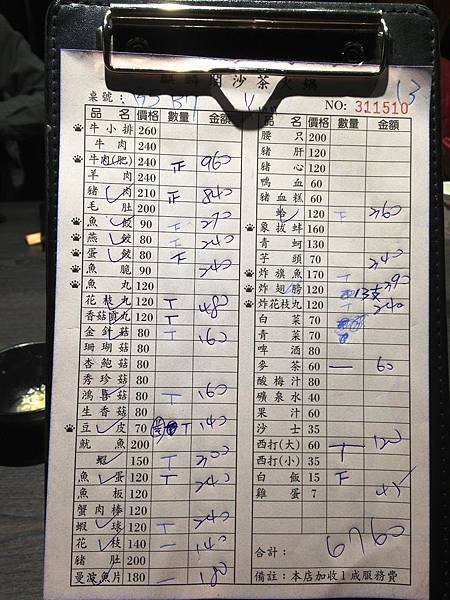 沙茶火鍋
桌號：
NO: 311510 13
品名 價格 數量 金額
牛小排 260
牛肉 240
牛肉(肥) 240 正 960
羊肉 240
豬肉 210 正 840
毛肚 200
魚餃 90 270
燕餃 80 240
蛋餃 80
魚脆 90 240
魚丸 120
花枝丸 120 T 480
香菇貢丸 120 T
金針菇 80 T 160
珊瑚菇 80
杏鮑菇 80
秀珍菇 80
鴻喜菇 80 T 160
生香菇 80
豆皮 70 T 140
魷魚 200
蝦 150 T 300
魚蛋 120 T 240
魚板 120
蟹肉棒 120
蝦球 120 T 240
花枝 140 一 140
豬肚 200
曼波魚片 180 一 180
品名 價格 數量 金額
腰只 200
豬肝 120
豬心 120
鴨血 60
豬血糕 60
蛤 120 360
象拔蚌 160
青蚵 130
芋頭 70 240
炸旗魚 170
炸翅膀 120 13支 390
炸花枝丸 120 240
白菜 70
青菜 70
啤酒 80
麥茶 60 一 60
酸梅汁 80
礦泉水 40
果汁 60
沙士 35
西打(大) 60 T 120
西打(小) 35
白飯 15 下 45
雞蛋 7
合計： 6760
備註：本店加收1成服務費